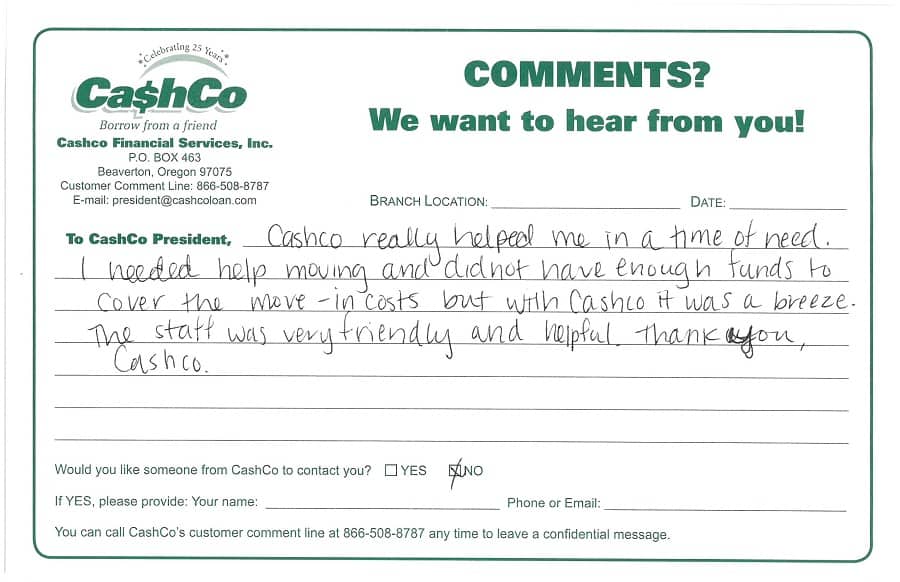 Celebrating 25 Years
Ca$hCo
Borrow from a friend
Cashco Financial Services, Inc.
P.O. BOX 463
Beaverton, Oregon 97075
Customer Comment Line: 866-508-8787
E-mail: president@cashcoloan.com
COMMENTS?
We want to hear from you!
BRANCH LOCATION:
DATE:
To CashCo President, Cashco really helped me in a time of need.
I needed help moving and did not have enough funds to
cover the move-in costs but with Cashco it was a breeze.
The staff was very friendly and helpful. Thank you,
Cashco.
Would you like someone from CashCo to contact you? YES NO
If YES, please provide: Your name: Phone or Email:
You can call CashCo's customer comment line at 866-508-8787 any time to leave a confidential message.